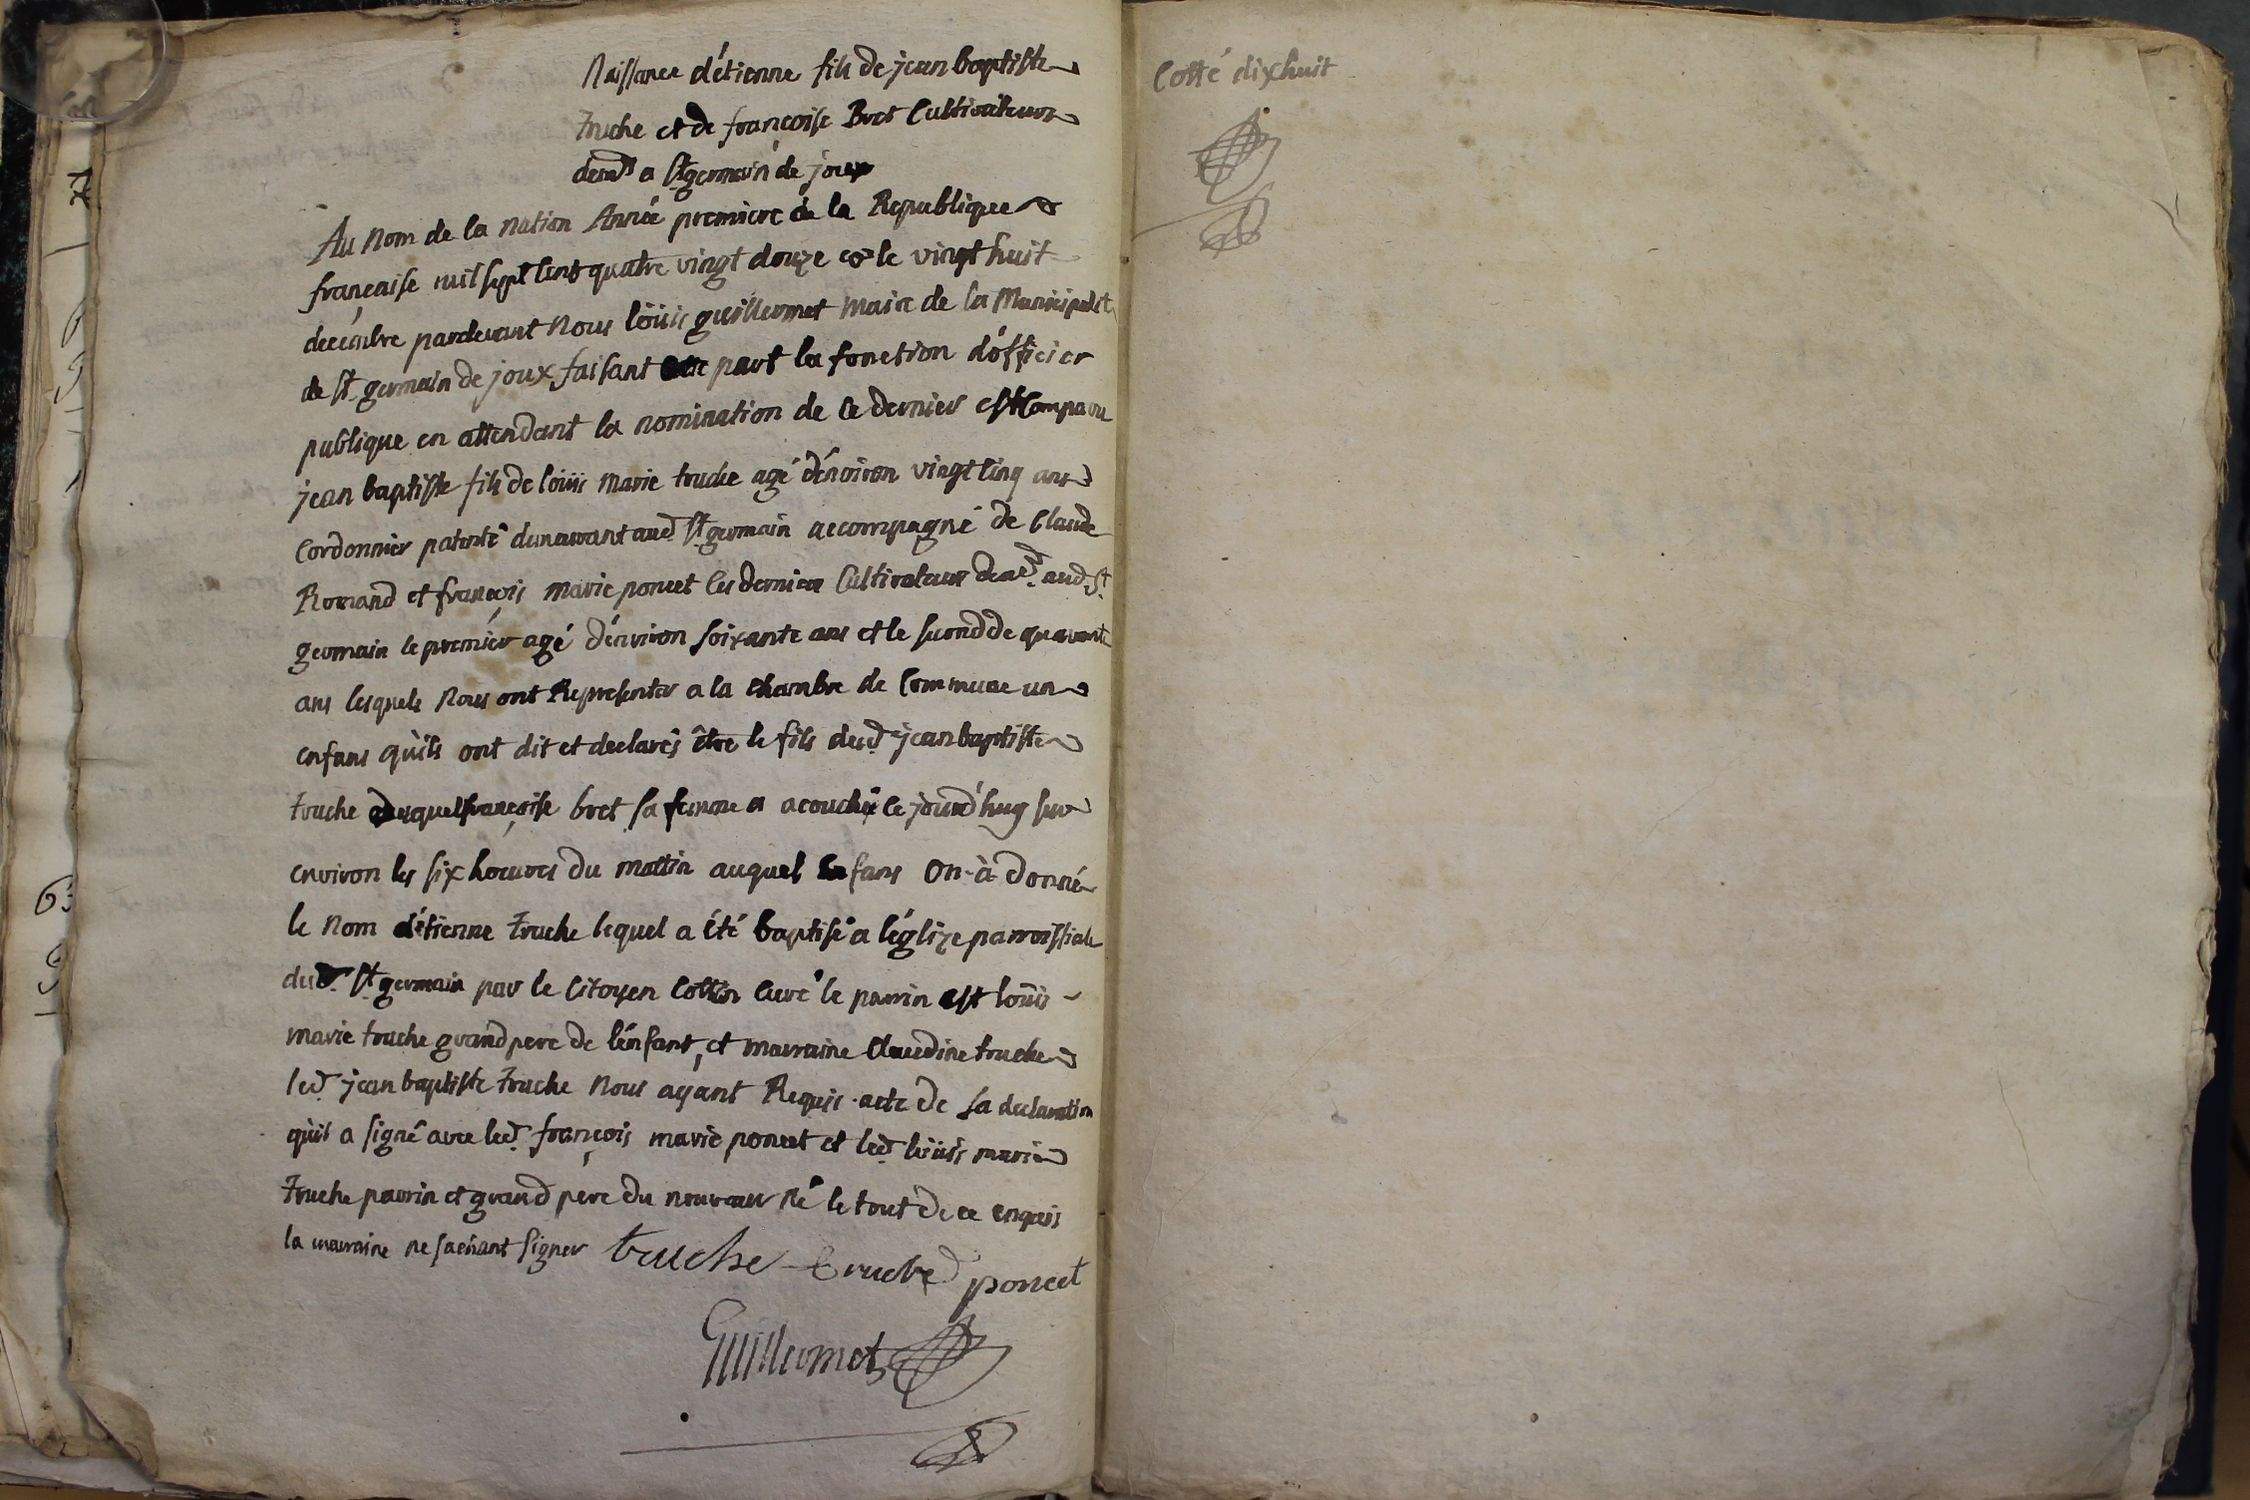 Naissance d'étienne fils de jean baptiste
truche et de françoise Bret Cultivateurs
demt a St germain de joux
Au Nom de la nation Année premiere de la Republique
française mil sept Cent quatre vingt douze et le vingt huit
decembre pardevant Nous loüis guillermet maire de la Municipalité
de St germain de joux faisant part la fonction d'officier
publique en attendant la nomination de ce dernier est Comparu
jean baptiste fils de loüis Marie truche agé d'énviron vingt Cinq ans
Cordonnier patenté demeurant aud St germain accompagné de Claude
Romand et françois marie poncet Ces dernier Cultivateurs demt. aud. St
germain le premiér agé d'énviron soixante ans et le second de quarante
ans lesquels Nous ont Representer a la Chambre de Commune un
enfans qu'ils ont dit et declarés être le fils dud jean baptiste
truche duquel françoise bret sa femme a acouché ce jourd'huy sur
environ les six heures du mattin auquel Enfans On à Donné
le Nom d'étienne truche lequel a été baptisé a l'églize parroissiale
dud. St germain par le Citoyen Cottin Curé le parrin est loüis
marie truche grand pere de l'énfant, et marraine Claudine truche
led jean baptiste truche Nous ayant Requis acte de sa declaration
qu'il a signé avec led françois marie poncet et led loüis marie
truche parrin et grand pere du nouveau Né le tout de ce enquis
la marraine ne sachant signer truche truche poncet
Guillermet
Cotté dixhuit